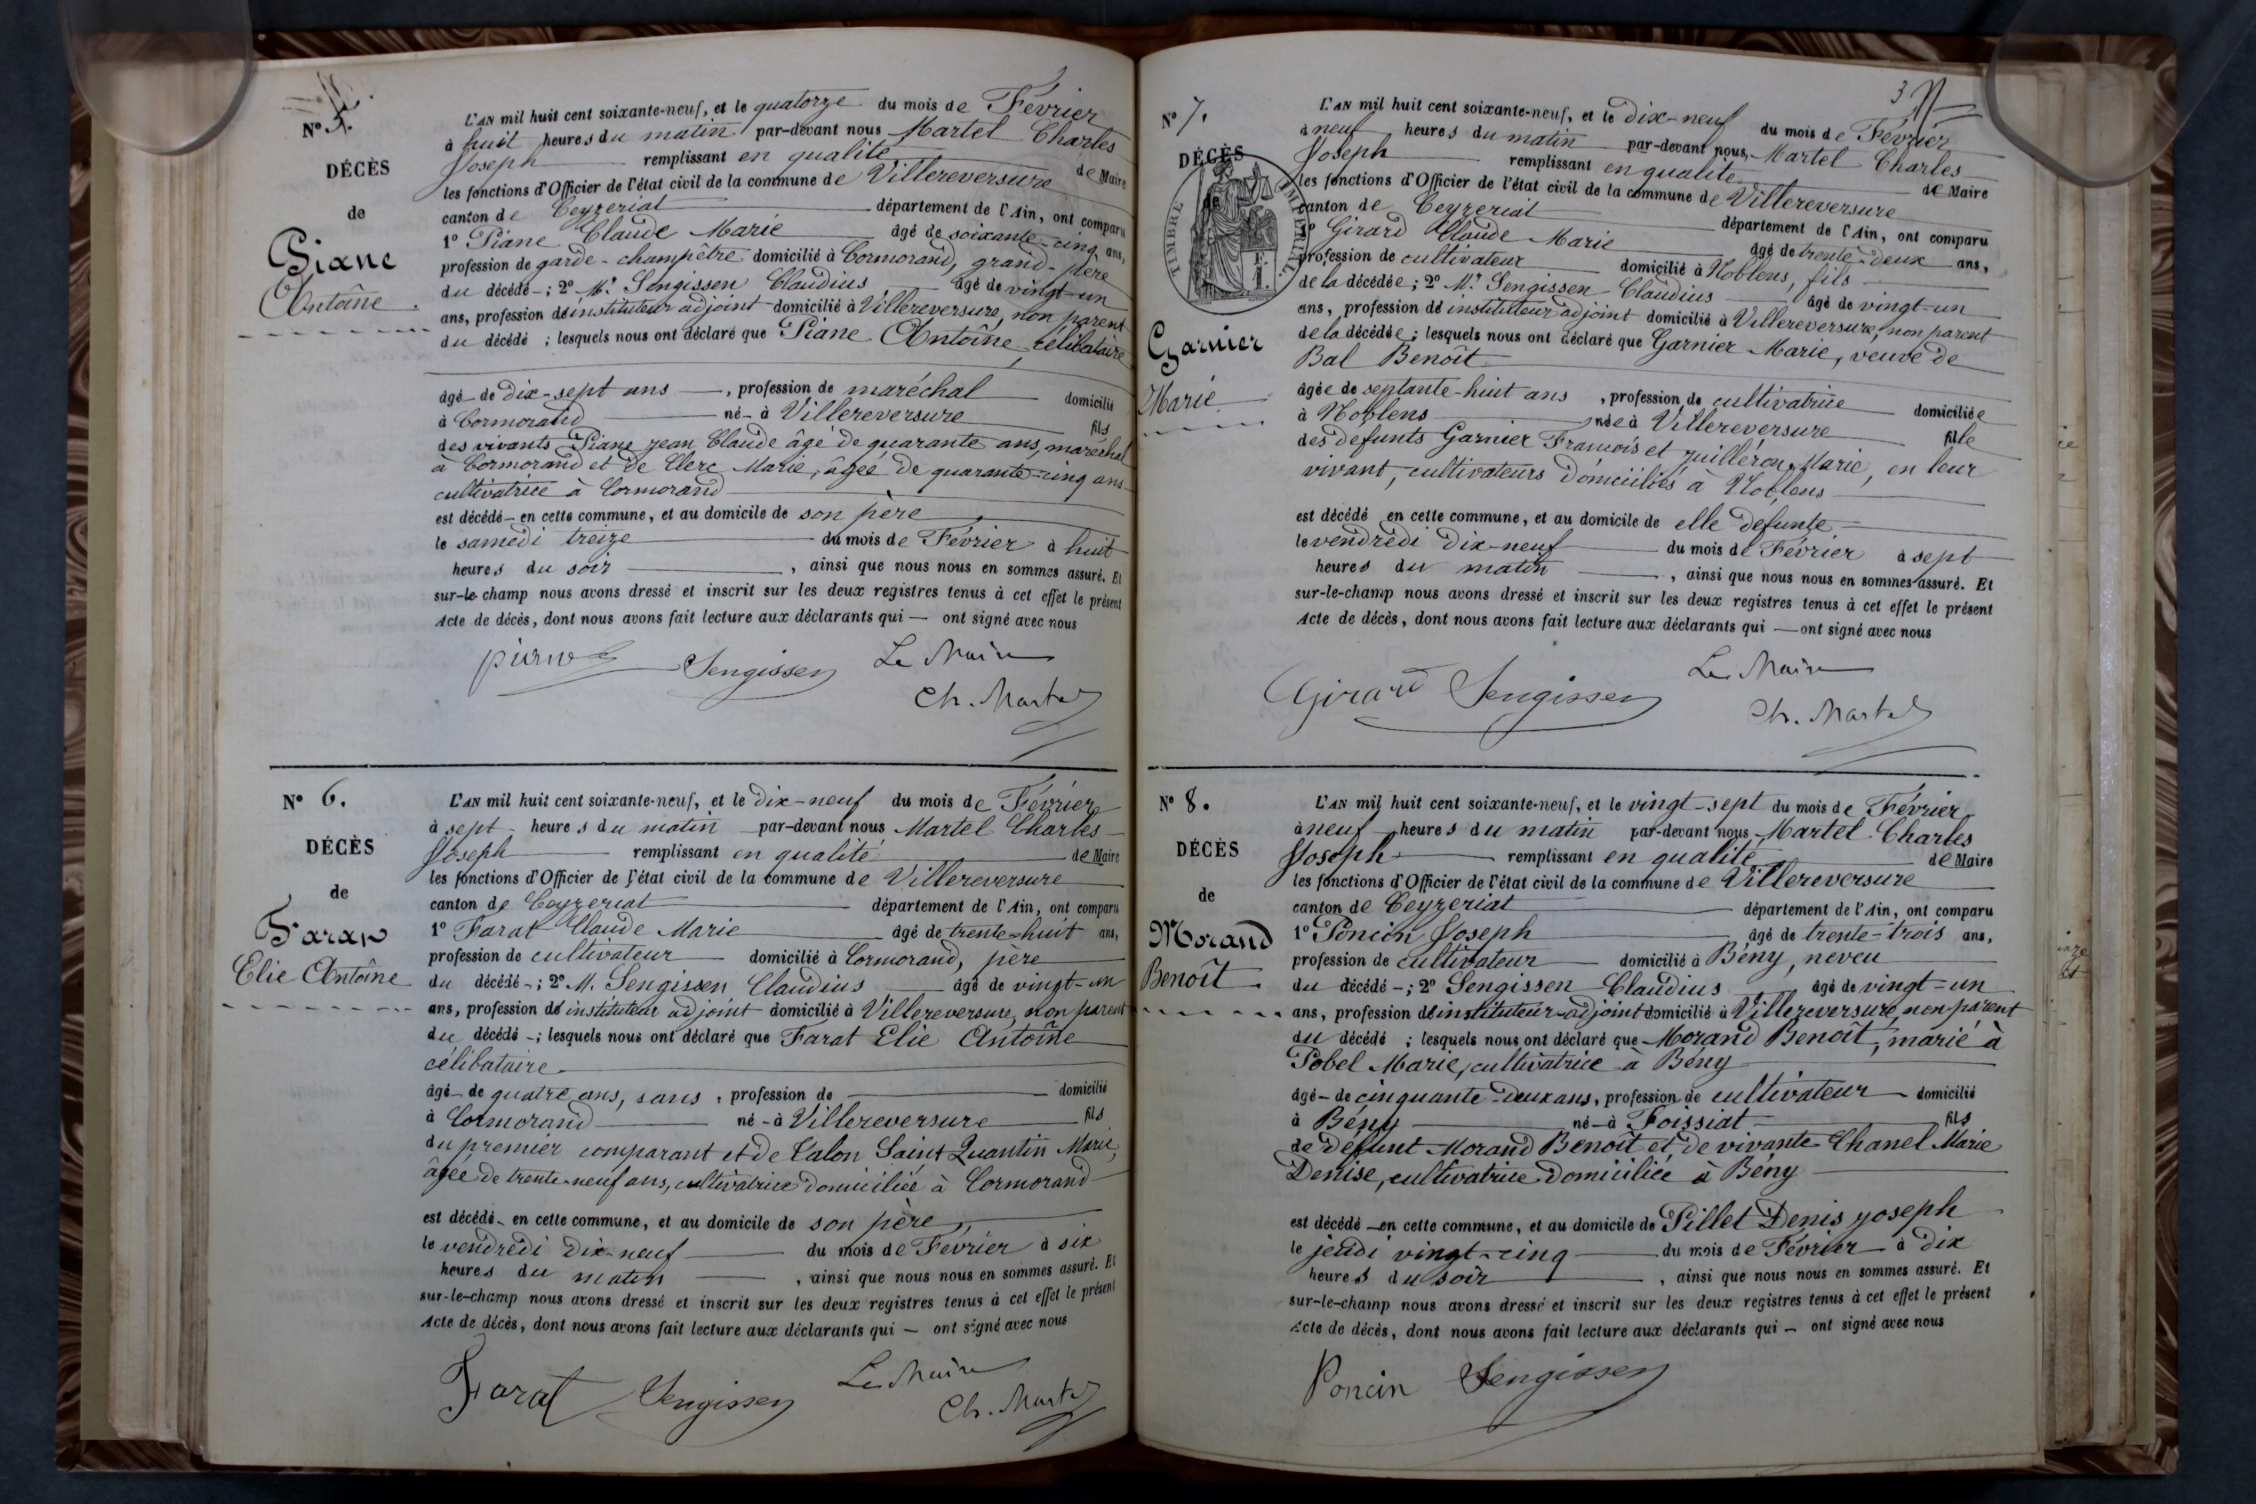 N° 5.
DÉCÈS
de
Piane
Antoine
L'AN mil huit cent soixante-neuf, et le quatorze du mois de Février
à huit heures du matin par-devant nous Martel Charles
Joseph remplissant en qualité de Maire
les fonctions d'Officier de l'état civil de la commune de Villereversure
canton de Ceyzeriat département de l'Ain, ont comparu
1° Piane Claude Marie âgé de soixante-cinq ans,
profession de garde-champêtre domicilié à Cormorand, grand-père
du décédé ; 2° Mr. Sengissen Claudius âgé de vingt-un
ans, profession d'instituteur adjoint domicilié à Villereversure, non parent
du décédé ; lesquels nous ont déclaré que Piane Antoine, célibataire
âgé de dix-sept ans, profession de maréchal domicilié
à Cormorand né à Villereversure fils
des vivants Piane Jean Claude âgé de quarante ans, maréchal
à Cormorand et de Clerc Marie, âgée de quarante-cinq ans
cultivatrice à Cormorand
est décédé en cette commune, et au domicile de son père
le samedi treize du mois de Février à huit
heures du soir, ainsi que nous nous en sommes assuré. Et
sur-le-champ nous avons dressé et inscrit sur les deux registres tenus à cet effet le présent
Acte de décès, dont nous avons fait lecture aux déclarants qui — ont signé avec nous
Sengissen Le Maire
Ch. Martel
N° 6.
DÉCÈS
de
Farat
Elie Antoine
L'AN mil huit cent soixante-neuf, et le dix-neuf du mois de Février
à sept heures du matin par-devant nous Martel Charles
Joseph remplissant en qualité de Maire
les fonctions d'Officier de l'état civil de la commune de Villereversure
canton de Ceyzeriat département de l'Ain, ont comparu
1° Farat Claude Marie âgé de trente-huit ans,
profession de cultivateur domicilié à Cormorand, père
du décédé ; 2° M. Sengissen Claudius âgé de vingt-un
ans, profession d'instituteur adjoint domicilié à Villereversure, non parent
du décédé ; lesquels nous ont déclaré que Farat Elie Antoine
célibataire
âgé de quatre ans, sans, profession de domicilié
à Cormorand né à Villereversure fils
du premier comparant et de Talon Saint Quantin Marie,
âgée de trente-neuf ans, cultivatrice domiciliée à Cormorand
est décédé en cette commune, et au domicile de son père,
le vendredi dix-neuf du mois de Février à six
heures du matin, ainsi que nous nous en sommes assuré. Et
sur-le-champ nous avons dressé et inscrit sur les deux registres tenus à cet effet le présent
Acte de décès, dont nous avons fait lecture aux déclarants qui — ont signé avec nous
Farat Sengissen Le Maire
Ch. Martel
3
N° 7.
DÉCÈS
de
TIMBRE IMPÉRIAL
Garnier
Marie
L'AN mil huit cent soixante-neuf, et le dix-neuf du mois de Février
à neuf heures du matin par-devant nous, Martel Charles
Joseph remplissant en qualité de Maire
les fonctions d'Officier de l'état civil de la commune de Villereversure
canton de Ceyzeriat département de l'Ain, ont comparu
1° Girard Claude Marie âgé de trente-deux ans,
profession de cultivateur domicilié à Noblens, fils
de la décédée ; 2° Mr. Sengissen Claudius âgé de vingt-un
ans, profession d'instituteur adjoint domicilié à Villereversure, non parent
de la décédée ; lesquels nous ont déclaré que Garnier Marie, veuve de
Bal Benoît
âgée de septante-huit ans, profession de cultivatrice domiciliée
à Noblens, née à Villereversure fille
des defunts Garnier François et Juilléron Marie, en leur
vivant, cultivateurs domiciliés à Noblens
est décédé en cette commune, et au domicile de elle defunte
le vendredi dix-neuf du mois de Février à sept
heures du matin, ainsi que nous nous en sommes assuré. Et
sur-le-champ nous avons dressé et inscrit sur les deux registres tenus à cet effet le présent
Acte de décès, dont nous avons fait lecture aux déclarants qui — ont signé avec nous
Girard Sengissen Le Maire
Ch. Martel
N° 8.
DÉCÈS
de
Morand
Benoît
L'AN mil huit cent soixante-neuf, et le vingt-sept du mois de Février
à neuf heures du matin par-devant nous, Martel Charles
Joseph remplissant en qualité de Maire
les fonctions d'Officier de l'état civil de la commune de Villereversure
canton de Ceyzeriat département de l'Ain, ont comparu
1° Poncin Joseph âgé de trente-trois ans,
profession de cultivateur domicilié à Bény, neveu
du décédé ; 2° Sengissen Claudius âgé de vingt-un
ans, profession d'instituteur-adjoint domicilié à Villereversure, non parent
du décédé ; lesquels nous ont déclaré que Morand Benoît, marié à
Pobel Marie, cultivatrice à Bény
âgé de cinquante-deux ans, profession de cultivateur domicilié
à Bény né à Foissiat fils
de défunt Morand Benoît et de vivante Chanel Marie
Denise, cultivatrice domiciliée à Bény
est décédé en cette commune, et au domicile de Pillet Denis Joseph
le jeudi vingt-cinq du mois de Février à dix
heures du soir, ainsi que nous nous en sommes assuré. Et
sur-le-champ nous avons dressé et inscrit sur les deux registres tenus à cet effet le présent
Acte de décès, dont nous avons fait lecture aux déclarants qui — ont signé avec nous
Poncin Sengissen